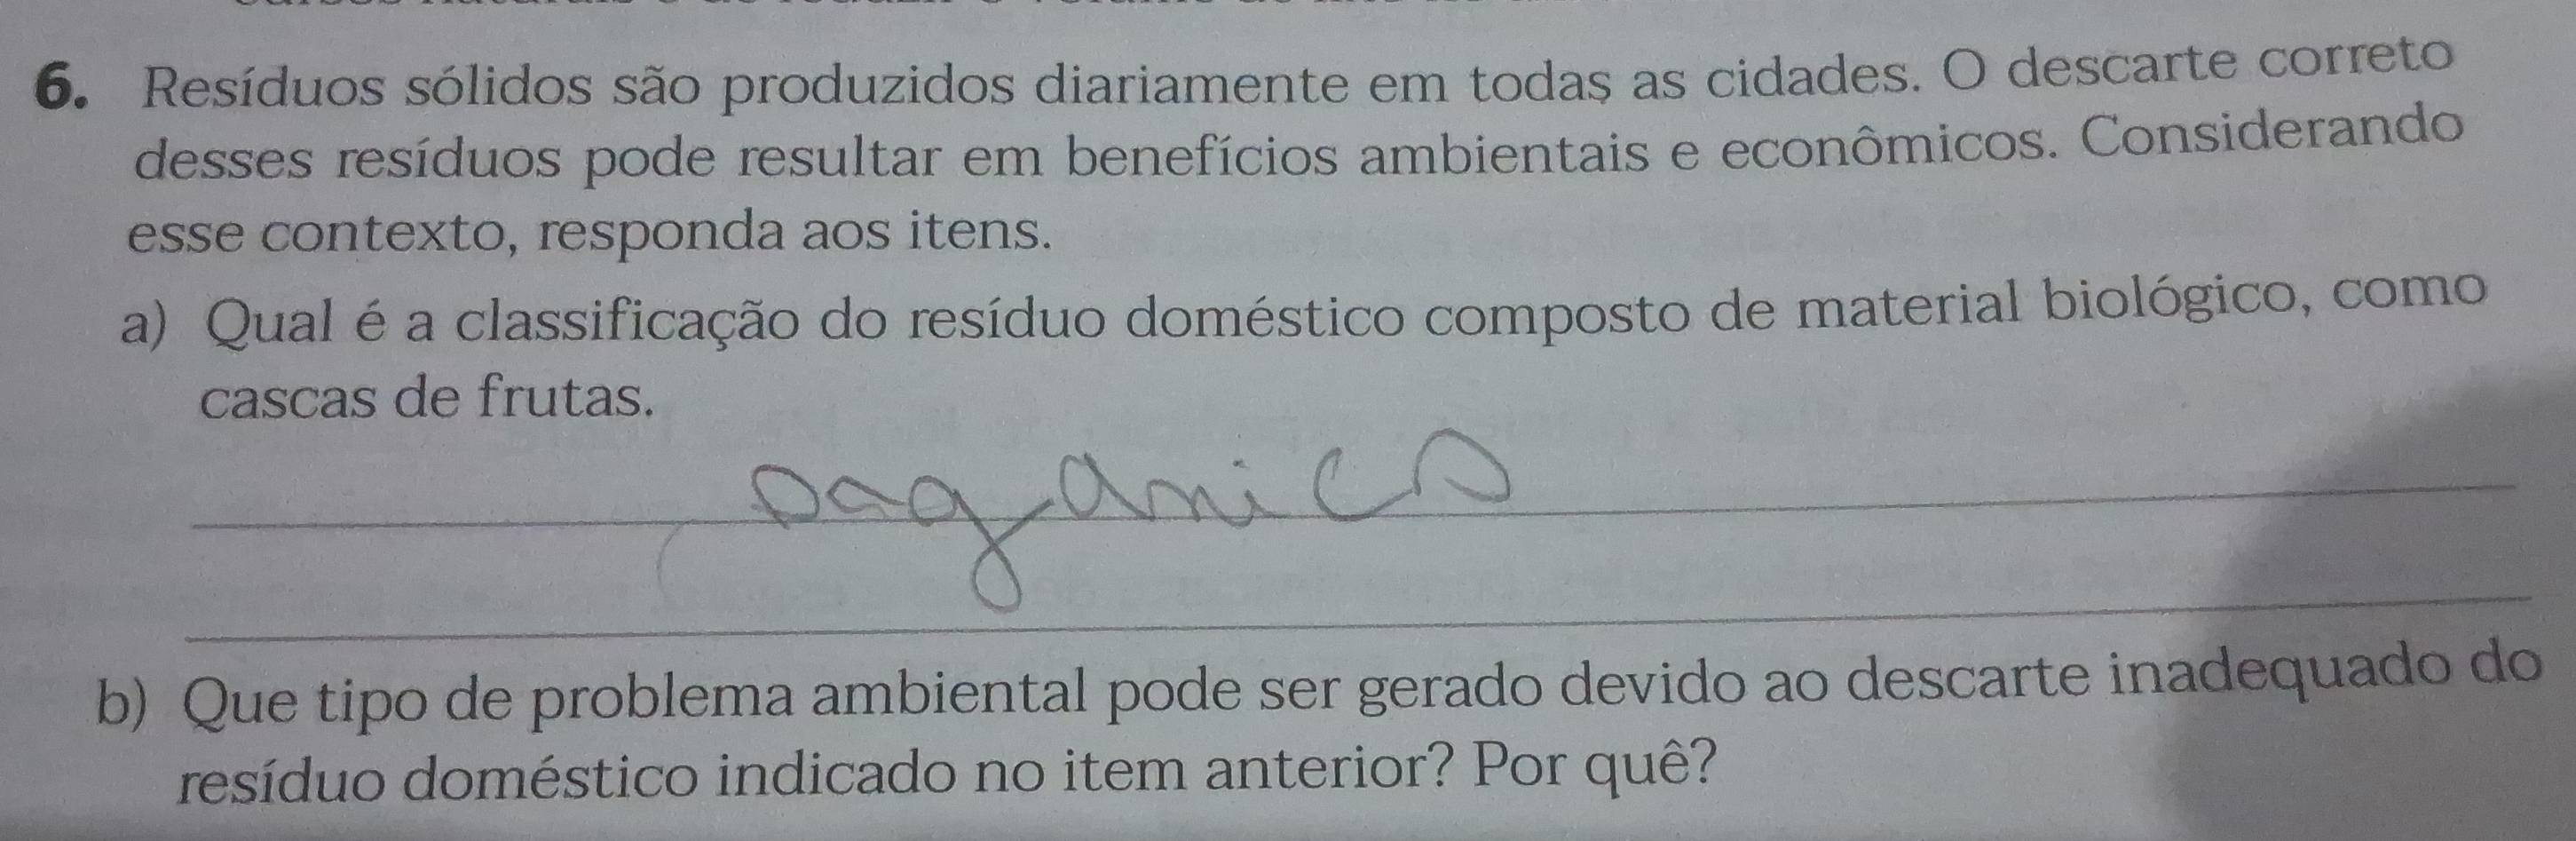 6. Resíduos sólidos são produzidos diariamente em todas as cidades. O descarte correto
desses resíduos pode resultar em benefícios ambientais e econômicos. Considerando
esse contexto, responda aos itens.
a) Qual é a classificação do resíduo doméstico composto de material biológico, como
cascas de frutas.
orgânico
b) Que tipo de problema ambiental pode ser gerado devido ao descarte inadequado do
resíduo doméstico indicado no item anterior? Por quê?